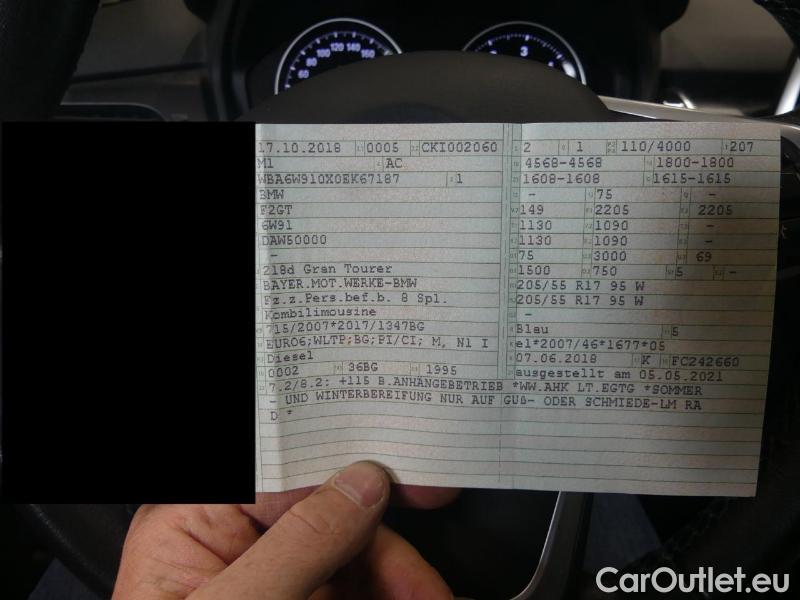 60 80 100 120 140 160
3
17.10.2018 0005 CKI002060 2 1 110/4000 207
M1 AC 4568-4568 1800-1800
WBA6W910X0EK67187 1 1608-1608 1615-1615
BMW - 75 -
F2GT 149 2205 2205
6W91 1130 1090 -
DAW50000 1130 1090 -
- 75 3000 69
218d Gran Tourer 1500 750 5 -
BAYER.MOT.WERKE-BMW 205/55 R17 95 W
Fz.z.Pers.bef.b. 8 Spl. 205/55 R17 95 W
Kombilimousine -
715/2007*2017/1347BG Blau 5
EURO6;WLTP;BG;PI/CI; M, N1 I e1*2007/46*1677*05
Diesel 07.06.2018 K FC242660
0002 36BG 1995 ausgestellt am 05.05.2021
7.2/8.2: +115 B.ANHÄNGEBETRIEB *WW.AHK LT.EGTG *SOMMER
- UND WINTERBEREIFUNG NUR AUF GUß- ODER SCHMIEDE-LM RA
D *
CarOutlet.eu